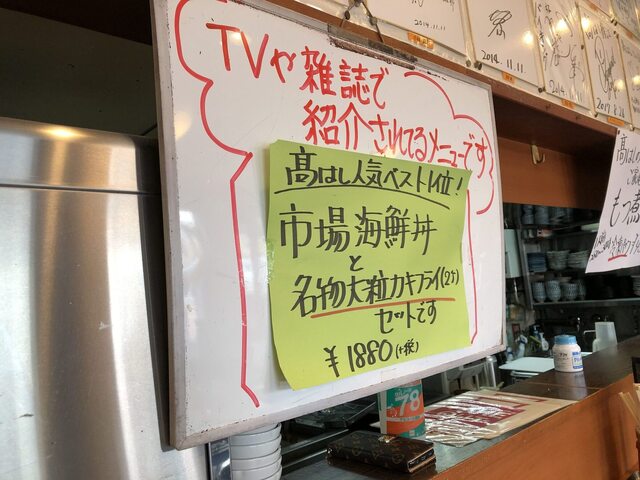 TVや雑誌で
紹介されてるメニューです
髙はし人気ベスト1位!
市場海鮮丼
と
名物大粒カキフライ(2ケ)
セットです
¥1880(+税)
2014.11.11
2014.11.11
2017.8.28
髙はし
もつ煮
78